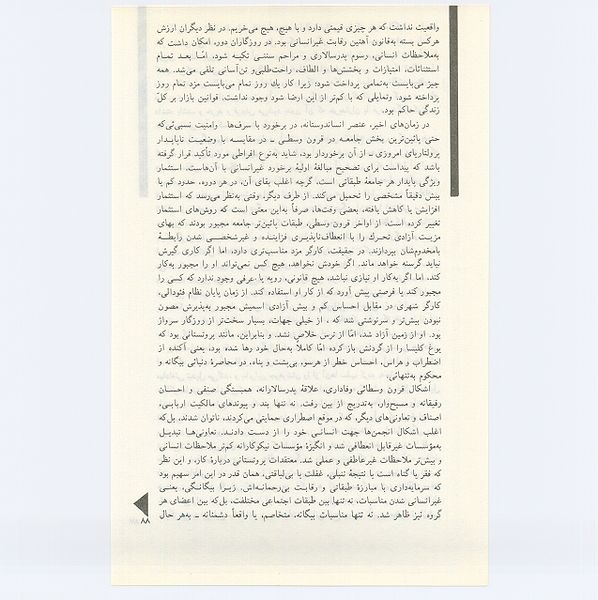 واقعیت نداشت که هر چیزی قیمتی دارد و با هیچ، هیچ می‌خریم. در نظر دیگران ارزش
هرکس بسته به‌قانون آهنین رقابت غیرانسانی بود. در روزگاران دور، امکان داشت که
به‌ملاحظات انسانی، رسوم پدرسالاری و مراحم سنتی تکیه شود، امّا بعد تمام
استثنائات، امتیازات و بخشش‌ها و الطاف، راحت‌طلبی و تن‌آسانی تلقی می‌شد. همه
چیز می‌بایست به‌تمامی پرداخت شود؛ زیرا کار یك روز تمام می‌بایست مزد تمام روز
پرداخته شود. وتمایلی که با کم‌تر از این ارضا شود وجود نداشت. قوانین بازار بر کلّ
زندگی حاکم بود.
در زمان‌های اخیر، عنصر انسان‌دوستانه، در برخورد با سرف‌ها وامنیت نسبی‌ئی‌که
حتی پائین‌ترین بخش جامعه در قرون وسطی ـ در مقایسه با وضعیت ناپایدار
پرولتاریای امروزی ـ از آن برخوردار بود، شاید به‌نوع افراطی مورد تأکید قرار گرفته
باشد که پیداست برای تصحیح مبالغهٔ اولیهٔ برخورد غیرانسانی با آن‌هاست. استثمار
ویژگی پایدار هر جامعهٔ طبقاتی است. گرچه اغلب بقای آن، در هر دوره، حدود کم یا
بیش دقیقاً مشخصی را تحمیل می‌کند. از طرف دیگر، وقتی به‌نظر می‌رسد که استثمار
افزایش یا کاهش یافته، بعضی وقت‌ها، صرفاً به‌این معنی است که روش‌های استثمار
تغییر کرده است. از اواخر قرون وسطی، طبقات پائین‌تر جامعه مجبور بودند که بهای
مزیت آزادی تحرك را با انعطاف‌ناپذیری فزاینده و غیرشخصی شدن رابطهٔ
با مخدوم‌شان بپردازند. در حقیقت، کارگر مزد مناسب‌تری دارد، اما اگر کاری گیرش
نیاید گرسنه خواهد ماند. اگر خودش نخواهد، هیچ کس نمی‌تواند او را مجبور به‌کار
کند، اما اگر به‌کار او نیازی نباشد، هیچ قانونی، رویه یا عرفی وجود ندارد که کسی را
مجبور کند یا فرصتی پیش آورد که از کار او استفاده کند. از زمان پایان نظام فئودالی،
کارگر شهری در مقابل احساس کم و بیش آزادی اسمیش مجبور به‌پذیرش مصون
نبودن بیش‌تر و سرنوشتی شد که، از خیلی جهات، بسیار سخت‌تر از روزگار سرواژ
بود. او از زمین آزاد شد، امّا از ترس خلاص نشد. و بنابراین، مانند پروتستانی بود که
یوغ کلیسا را از گردنش باز کرده امّا کاملاً به‌حال خود رها شده بود، یعنی آکنده از
اضطراب و هراس، احساس خطر از هرسو، بی‌پشت و پناه، در محاصرهٔ دنیائی بیگانه و
محکوم به‌تنهائی.
اشکال قرون وسطائی وفاداری، علاقهٔ پدرسالارانه، همبستگی صنفی و احسان
رفیقانه و مسیح‌وار، به‌تدریج از بین رفت. نه تنها بند و پیوندهای مالکیت اربابی،
اصناف و تعاونی‌های دیگر، که در موقع اضطراری حمایتی می‌کردند، ناتوان شدند، بل‌که
اغلب اشکال انجمن‌ها جهت انسانی خود را از دست دادند. تعاونی‌ها تبدیل
به‌مؤسسات غیرقابل انعطافی شد و انگیزهٔ مؤسسات نیکوکارانه کم‌تر ملاحظات انسانی
و بیش‌تر ملاحظات غیرعاطفی و عملی شد. معتقدات پروتستانی دربارهٔ کار، و این نظر
که فقر یا گناه است یا نتیجهٔ تنبلی، غفلت یا بی‌لیاقتی، همان قدر در این امر سهیم بود
که سرمایه‌داری با مبارزهٔ طبقاتی و رقابت بی‌رحمانه‌اش. زیرا بیگانگی، یعنی
غیرانسانی شدن مناسبات، نه تنها بین طبقات اجتماعی مختلفت، بل‌که بین اعضای هر
گروه نیز ظاهر شد. نه تنها مناسبات بیگانه، متخاصم، یا واقعاً دشمنانه ـ به‌هر حال
۸۸